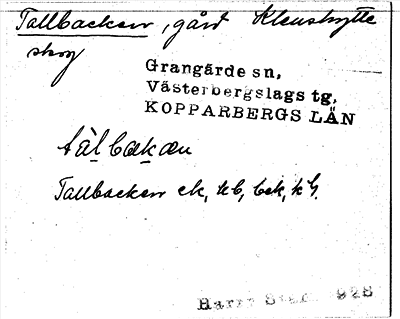 Tallbacken, gård Klenshytte
skog
Grangärde sn,
Västerbergslags tg,
KOPPARBERGS LÄN
tàlbækæn
Tallbacken ek, kb, bek, kG.
Harry 928